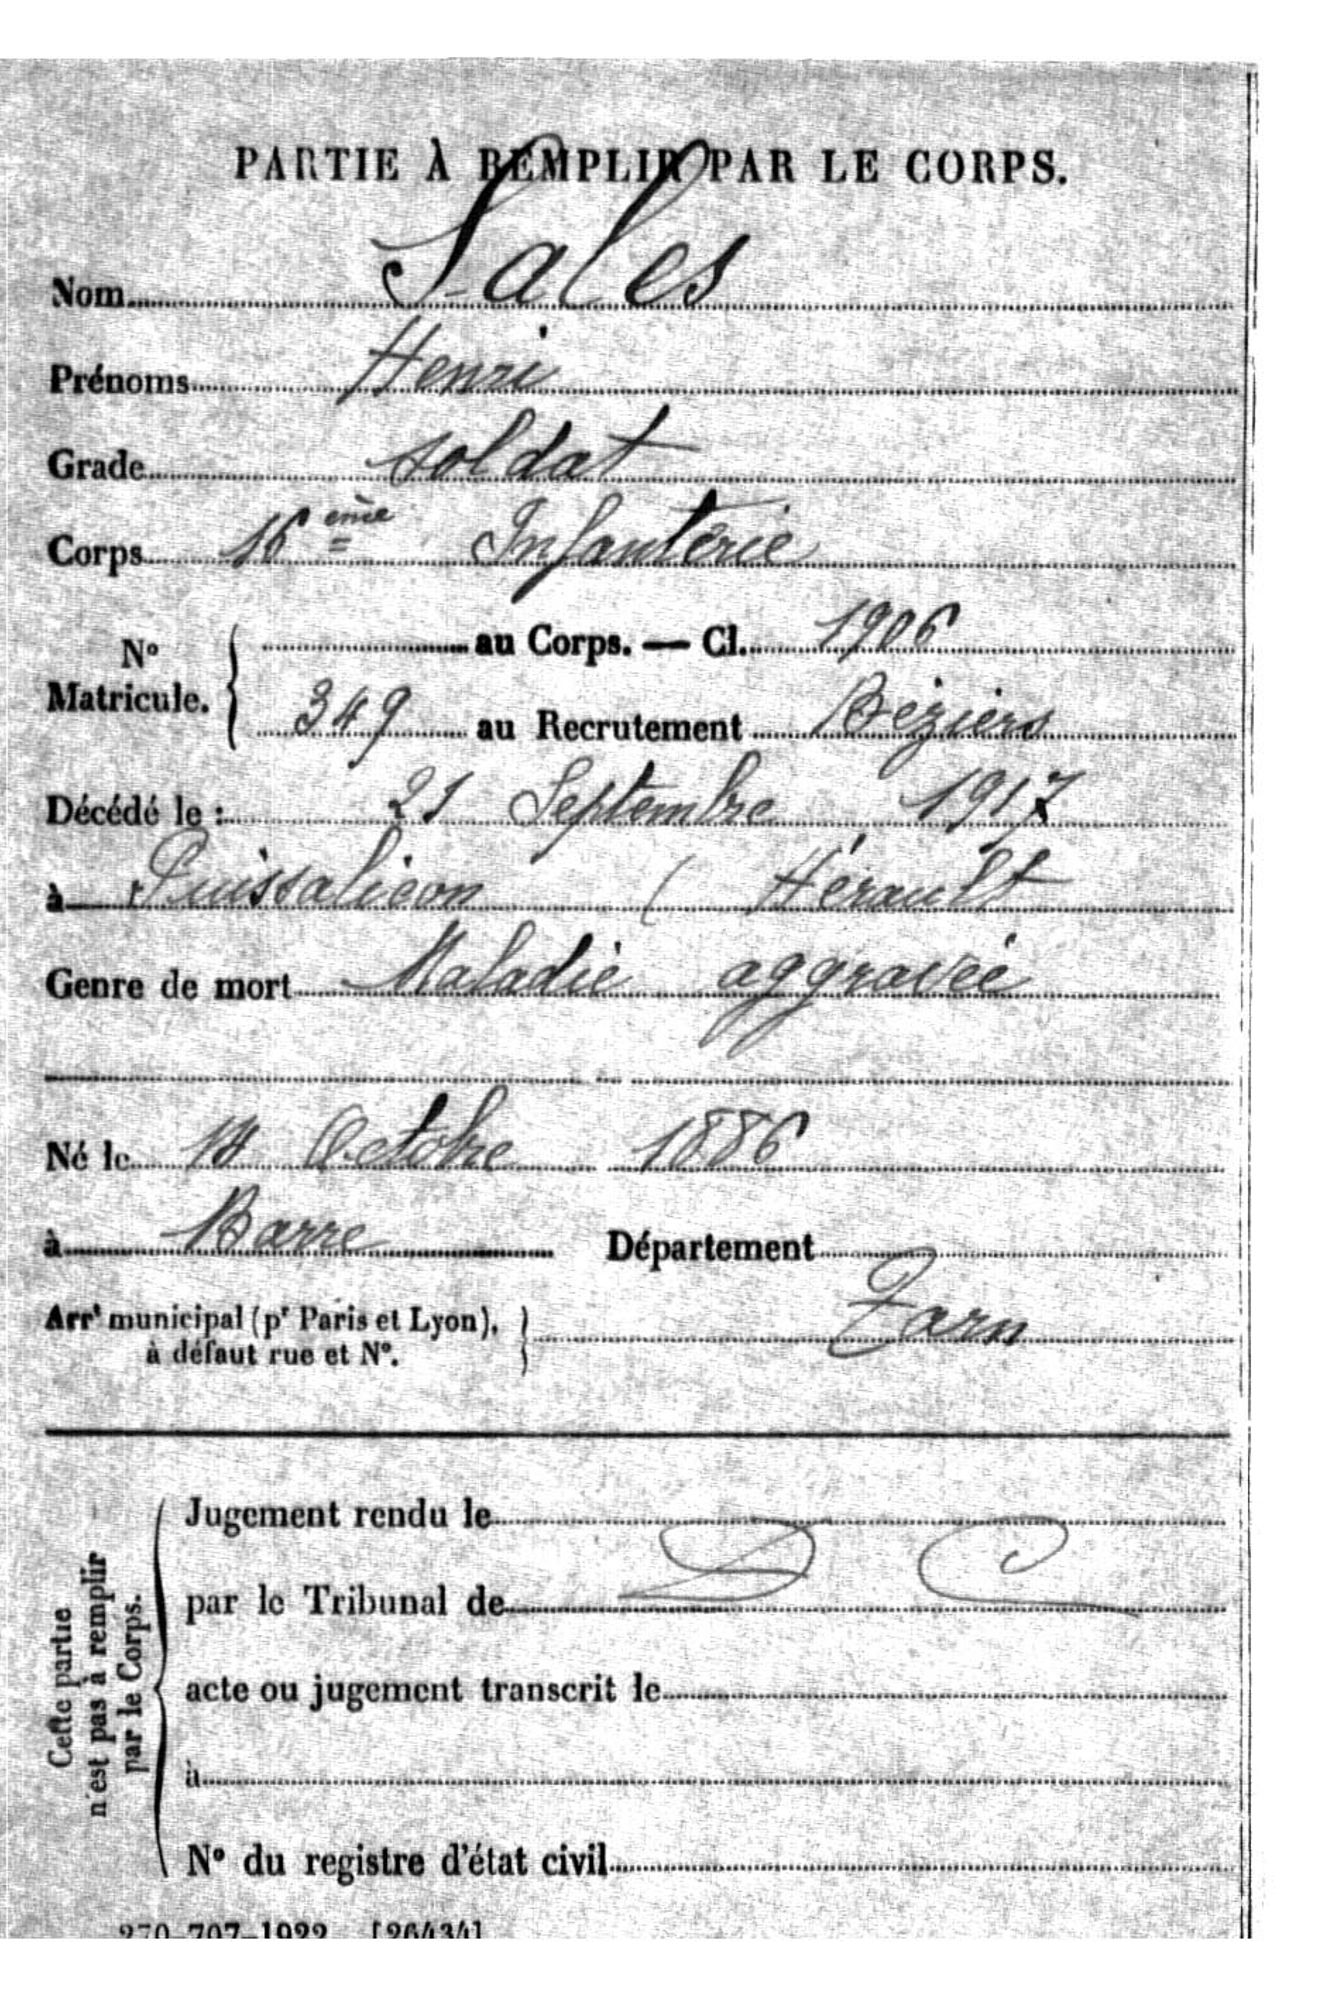 PARTIE À REMPLIR PAR LE CORPS.
Nom Sales
Prénoms Henri
Grade soldat
Corps 16 ème Infanterie
N° Matricule. { au Corps. — Cl. 1906
349 au Recrutement Béziers
Décédé le : 21 Septembre 1917
à Puissalicon ( Hérault
Genre de mort Maladie aggravée
Né le Octobre 1886
à Barre Département
Arrt municipal (pr Paris et Lyon), à défaut rue et N°. } Tarn
Cette partie n'est pas à remplir par le Corps.
Jugement rendu le
par le Tribunal de
acte ou jugement transcrit le
à
N° du registre d'état civil
270-707-1922 [26434]